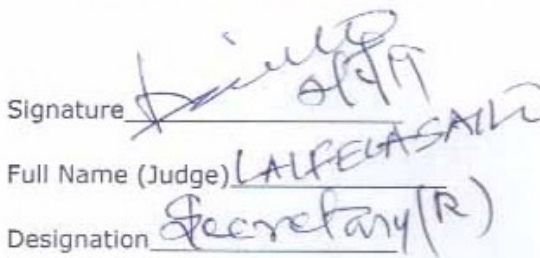 Signature
Full Name (Judge) LALFELASAILO
Designation Secretary (R)